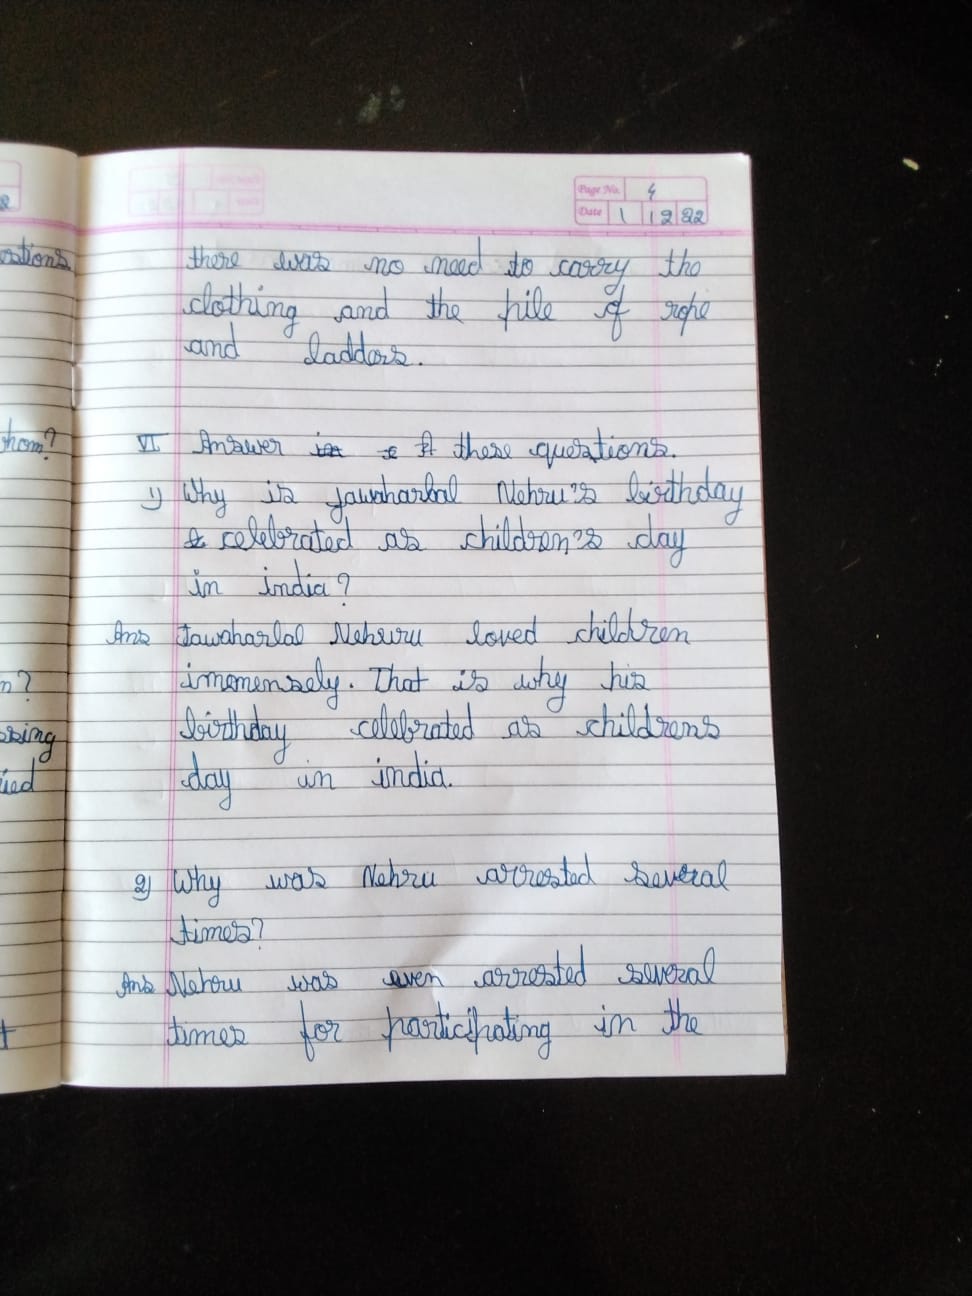 Page No. 4
Date 1 12 22
there was no need to carry the
clothing and the pile of rope
and laddors.
VI Answer these questions.
1) Why is jawaharlal Nehru's birthday
celebrated as children's day
in india?
Ans Jawaharlal Nehuru loved children
imomensely. That is why his
birthday celebrated as childrens
day in india.
2) Why was Nehru arrested several
times?
Ans Nehru was even arrested several
times for participating in the